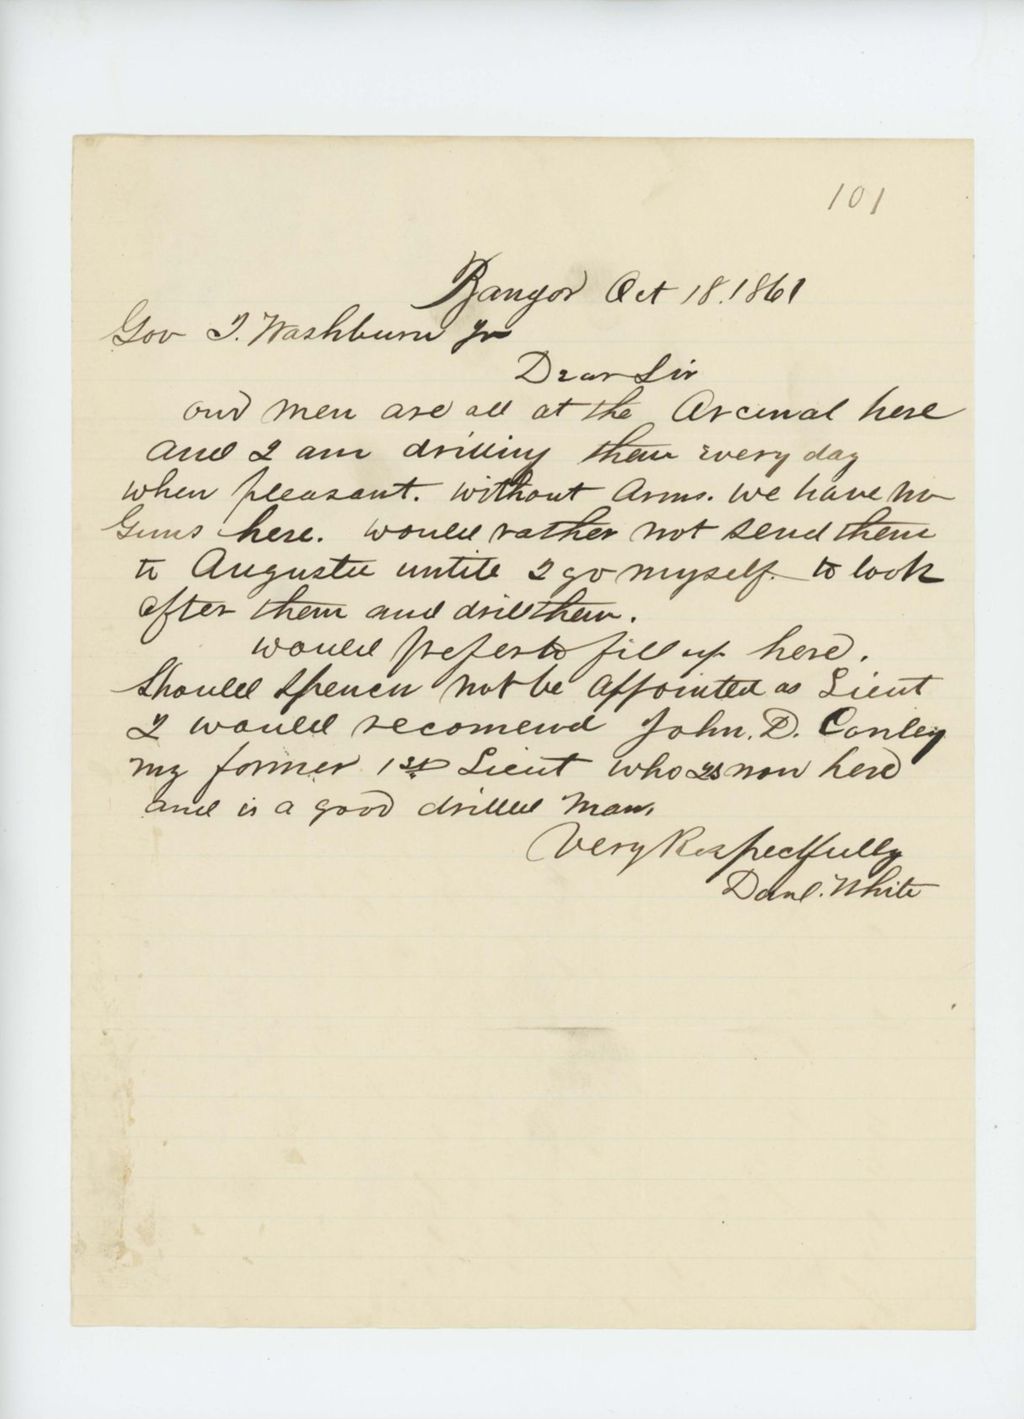 101
Bangor Oct 18. 1861
Gov I. Washburn Jr
Dear Sir
our men are all at the Arcenal here
and I am drilling them every day
when pleasant. without Arms. we have no
Guns here. would rather not send them
to Augusta untile I go myself. to look
after them and drill them.
would prefer to fill up here.
Should Spencer not be appointed as Lieut
I would recomend John. D. Conley
my former 1st Lieut who is now here
and is a good drilled man,
Very Respectfully
Danl. White